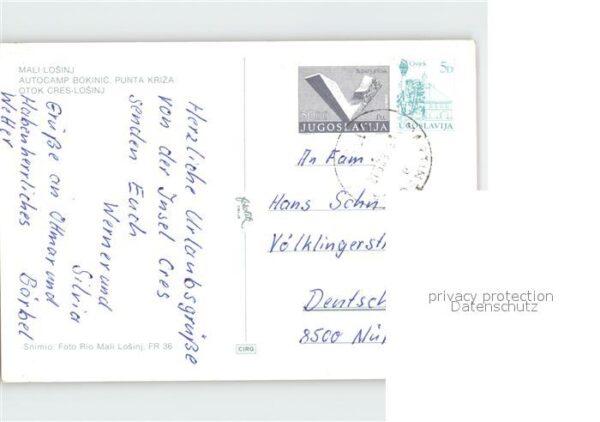 MALI LOŠINJ
AUTOCAMP BOKINIČ, PUNTA KRIŽA
OTOK CRES-LOŠINJ
Herzliche Urlaubsgrüße
von der Insel Cres
senden Euch
Werner und
Silvia
Grüße an Ottmar und Bärbel
Hobenherrliches
Wetter
Snimio: Foto Rio Mali Lošinj, FR 36
CIRG
JUGOSLAVIJA
Osijek
50
JUGOSLAVIJA
An Fam.
Hans Schn
Völklingerstr
Deutsch
8500 Nür
privacy protection
Datenschutz